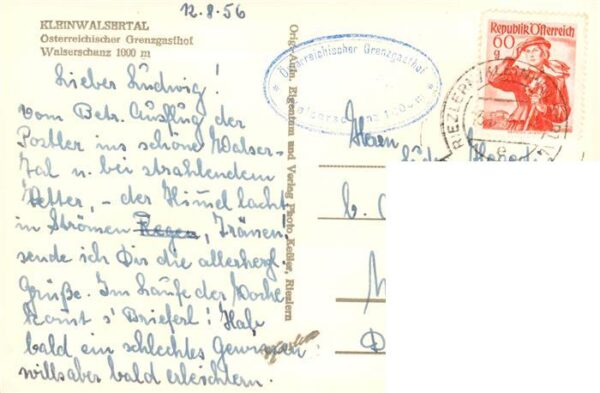 12.8.56
KLEINWALSERTAL
Österreichischer Grenzgasthof
Walserschanz 1000 m
Lieber Ludwig!
vom Betr. Ausflug der
Postler ins schöne Walser-
tal u. bei strahlendem
Wetter, – der Himel lacht
in Strömen Regen, Tränen!
sende ich Dir die allerhgl.
Grüße. Im Laufe der Woche
komt s' Brieferl! Hab
bald ein schlechtes Gewissen
wills aber bald erleichtern.
Orig.-Aufn. Eigentum und Verlag Photo Keßler, Riezlern
Österreichischer Grenzgasthof
Walserschanz 1000 m
Republik Österreich
60
g
RIEZLERN
e
Herrn